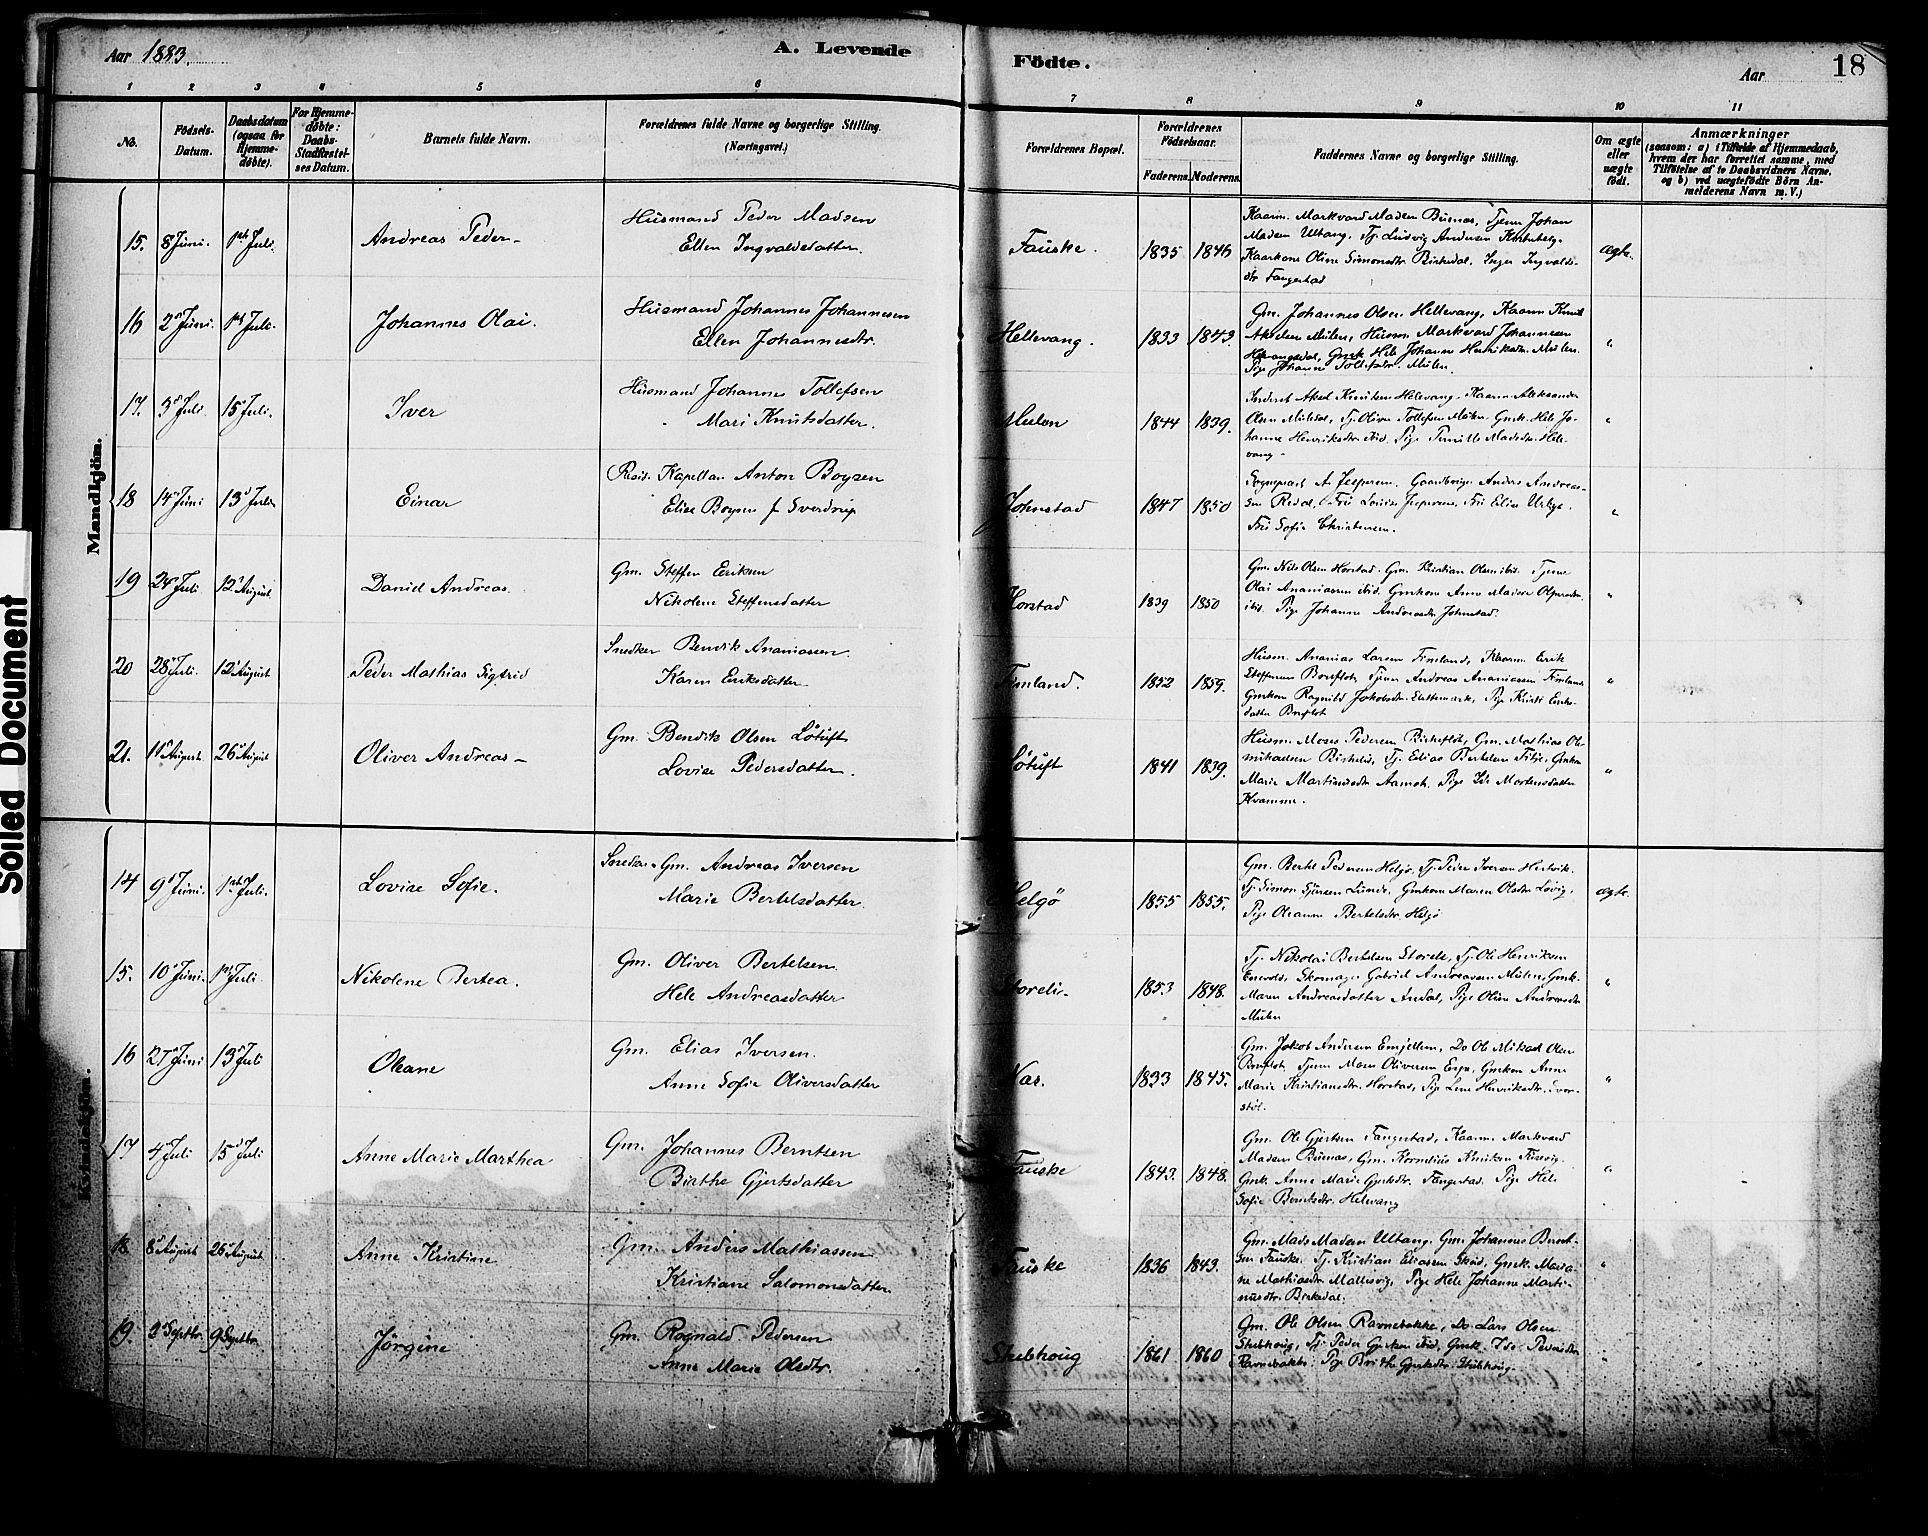 Aar 1883. A. Levende Födte. Aar 18
1 2 3 4 5 6 7 8 9 10 11
No. Födsels-Datum. Daabsdatum (ogsaa for Hjemme-döbte). For Hjemme-döbte: Daabs-Stadfæstel-ses Datum. Barnets fulde Navn. Forældrenes fulde Navne og borgerlige Stilling. (Næringsvei.) Forældrenes Bopæl. Forældrenes Födselsaar. Faderens. Moderens. Faddernes Navne og borgerlige Stilling. Om ægte eller uægte födt. Anmærkninger (saasom: a) i Tilfælde af Hjemmedaab, hvem der har forrettet samme, med Tilföielse af to Daabsvidners Navne, og b) ved uægtefödte Börn An-melderens Navn m. V.)
Mandkjön.
15. 8 Juni. 1ste Juli. Andreas Peder- Husmand Peder Madsen
Ellen Ingvaldsdatter. Fauske. 1835 1846 ægte.
Kaarm. Markvard Madsen Buenas, Tjener Johan
Madsen Ultang, Tj. Ludvig Andersen
Kaarkone Oline Simonsdtr. Birkedal, Inger Ingvalds-
dtr Fangestad
16 2 Juni. 1ste Juli. Johannes Olai. Husmand Johannes Johannesen
Ellen Johannesdtr. Hellevang. 1833 1843. "
Gm. Johannes Olsen Hellevang, Kaarm Knut
Akselsen Mülen, Husm. Markvard Johannesen
Gmk Hele Johanne Henriksdtr. Mülen.
Pige Johanne Mülen.
17. 3 Juli. 15 Juli. Iver Husmand Johannes Tollefsen
Mari Knutsdatter. Mulen 1844 1839. "
Aksel Knutsen Helevang. Kaarm Aleksander
Olsen Tj. Oliver Tollefsen Mülen. Gmk. Hele Jo-
hanne Henriksdtr ibid. Pige Pernille Madsdtr. Hele-
vang-
18 14 Juni 13 Juli. Einar Resid. Kapellan Anton Boysen
Elise Boysen f Sverdrup Johnstad 1847 1850 "
Sogneprest A. Jespersen. Gaardbruger Anders Andreas-
sen Redal, Fru Louise Jespersen, Fru Elise
Fru Sofie Christensen.
19 24 Juli 12 August. Daniel Andreas. Gm. Steffen Eriksen
Nikoline Steffensdatter Horstad 1839 1850 "
Gm. Nils Olsen Horstad. Gm. Kristian Olsen ibid. Tjener
Olai Ananiassen ibid. Gmkone Anne
ibid. Pige Johanne Andreasdtr Johnstad.
20 28 Juli. 12 August Peder Mathias Sigfrid Snedker Bendik Ananiassen
Karen Eriksdatter Fimland. 1852 1859. "
Husm. Ananias Larsen Fimland, Kaarm. Erik
Steffensen Tjener Andreas Ananiassen Fimland
Gmkone Ragnild Jakobsdtr. Pige Kristi Eriks-
datter
21. 11 August 26 August Oliver Andreas- Gm. Bendik Olsen Løtuft
Lovise Pedersdatter. Løtuft 1841 1839. "
Husm. Moses Pedersen Birkeflot, Gm. Mathias Ole-
mikaelsen Birkelid, Tj. Edias Bertelsen Gmkone
Marie Martinusdtr Aamot, Pige Ida Mortensdatter
Kvamme.
Kvindekjön.
14 9 Juni. 1ste Juli. Lovise Sofie. Snedker. Gm. Andreas Iversen
Marie Bertelsdatter. Helgö 1855 1855. ægte.
Gm. Bertel Pedersen Helgö, Tj. Peder Iversen
Tj. Simon Lunde, Gmkone Maren Olsdtr Løvig,
Pige Oleanna Bertelsdtr. Helgö
15. 10 Juni. 1ste Juli. Nikolene Bertea. Gm. Oliver Bertelsen
Hele Andreasdatter Storeli. 1853 1848. "
Tj. Nikolai Bertelsen Storeli, Tj. Ole Henriksen
Skomager Gabriel Andreassen Mülen, Gmk.
Maren Andreasdatter Andal, Pige Oline Andreasdtr
Mülen
16 27 Juni 13 Juli Oleane Gm. Elias Iversen.
Anne Sofie Oliversdatter Nas. 1833 1845. "
Gm. Jakob Andersen Emjellem, Do Ole Mikael Olsen
Tjener Moses Oliversen Gmkone Anne
Marie Kristiansdtr. Horstad, Pige Lene Henriksdtr.
støl.
17 4 Juli 15 Juli Anne Marie Marthea Gm. Johannes Berntsen
Birthe Gjertsdatter Fauske 1843. 1848. "
Gm. Ole Gjertsen Fangestad, Kaarm. Markvard
Madsen Buenas, Gm. Kornelius Knutsen
Gmk. Anne Marie Gjertsdtr. Fangestad. Pige Hele
Sofie Berntsdtr. Helevang
18 8 August 26 August. Anne Kristine Gm. Anders Mathiassen
Kristiane Salomonsdatter Fauske 1836 1843. "
Gm. Mads Madsen Ultang. Gm Johannes Bernt-
sen Fauske. Tj. Kristian Eliassen Skod, Gmk. Maria-
ne Mathiasdtr Pige Hele Johanne Marti-
nusdtr. Birkedal.
19. 2 Septbr. 9 Septbr. Jörgine Gm. Rognald Pedersen
Anne Marie Olsdtr. Stubhoug 1861 1860 "
Gm. Ole Olsen Ravnebakke, Do. Lars Olsen
Stubhoug, Tj. Peder Gjertsen ibid, Gmk. Ide Pedersdtr
Ravnebakke. Pige Brithe Gjertsdtr. Stubhoug.
Soiled Document